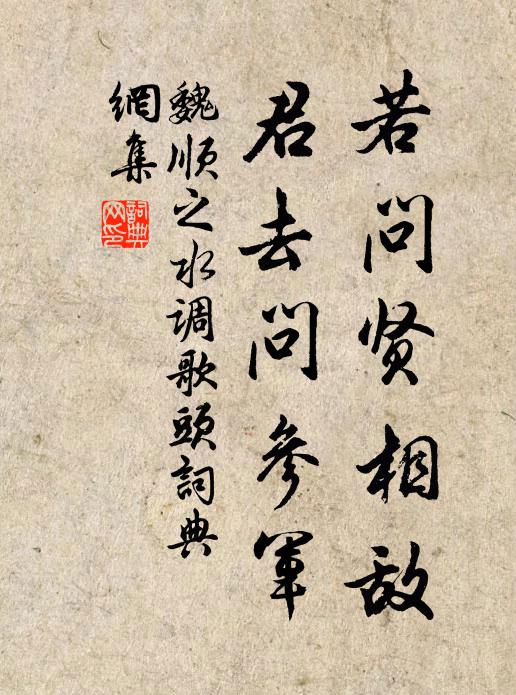 若问贤相敌
君去问参军
魏顺之水调歌头詞典
網集
詞典
网印